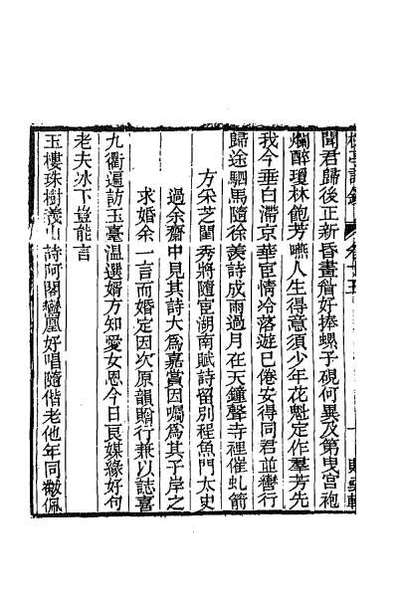 聞君歸後正新昏畫詹好捧螺子硯何異及第曳宮袍
爛醉瓊林飽芳嚥人生得意須少年花魁定作羣芳先
我今垂白滯京華宦情冷落遊已倦安得同君並轡行
歸途駟馬隨徐羨詩成雨過月在天鐘聲寺裡催虬箭
方采芝閨秀將隨宦湖南賦詩留別程魚門太史
過余齋中見其詩大為嘉賞因囑為其子岸之
求婚余一言而婚定因次原韻贈行兼以誌喜
九衢遍訪玉毫溫選婿方知愛女恩今日良媒緣好句
老夫冰下豈能言
玉樓珠樹義山詩阿閣鸞凰好唱隨偕老他年同黻佩